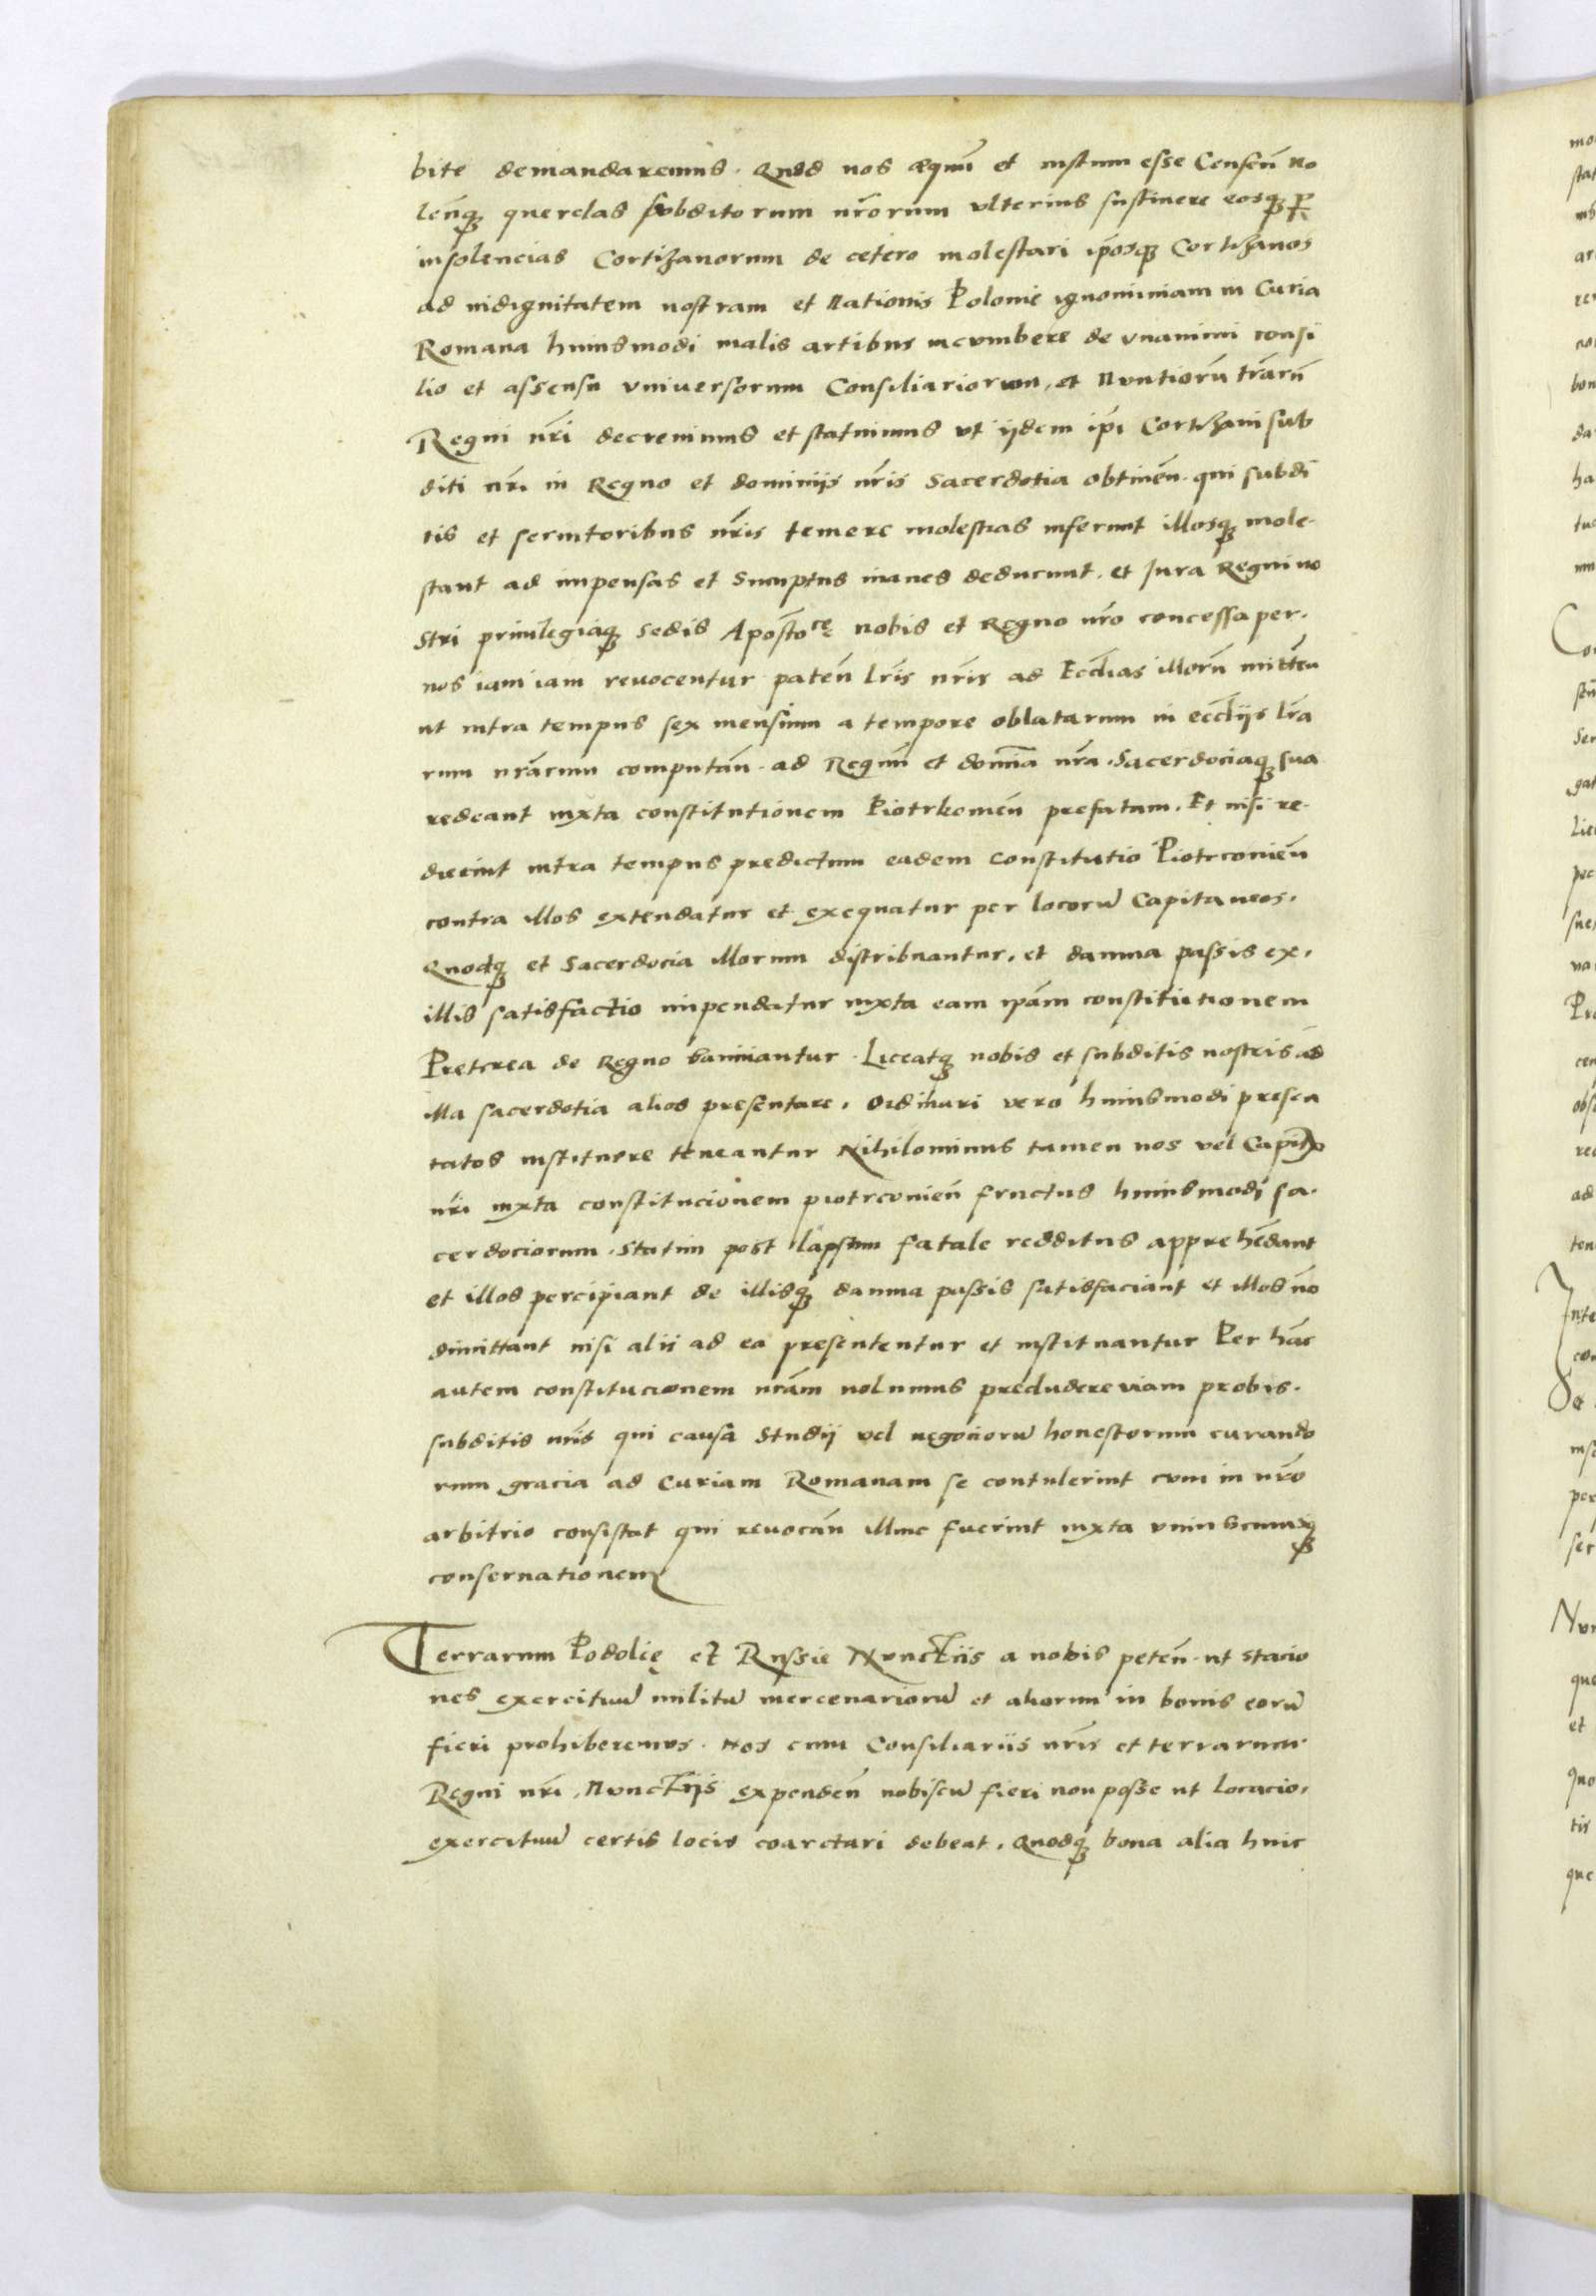 bite demandaremus. Quod nos æquũ et iustum esse Censeñ no
leñq̃ querelas subditorum nr̃orum vlterius sustinere eosq̃ p
insolencias Cortizanorum de cetero molestari ip̃osq̃ Cortizanos
ad indignitatem nostram et Nationis Polonie ignominiam in Curia
Romana huiusmodi malis artibus incumbere de vnanimi consi
lio et assensu vniuersorum Consiliariorum, et Nuntiorũ tr̃arũ
Regni nr̃i decreuimus et statuimus vt ijdem ip̃i Cortizani sub
diti nr̃i in Regno et dominijs nr̃is Sacerdotia obtineñ. qui subdi
tis et seruitoribus nr̃is temere molestias inferunt illosq̃ mole-
stant ad impensas et Sumptus inanes deducunt. et Jura Regni no
stri priuilegiaq̃ Sedis Apostõce nobis et Regno nr̃o concessa per.
nos iam iam reuocentur pateñ lr̃is nr̃is ad Eccl̃ias illorũ mitteñ
ut intra tempus sex mensium a tempore oblatarum in eccl̃ijs lr̃a
rum nr̃arum computañ. ad Regnũ et domĩa nr̃a. Sacerdociaq̃ sua
redeant iuxta constitutionem Piotrkomeñ prefatam. Et nisi re-
dierint intra tempus predictum eadem constitutio Piotrconieñ
contra illos extendatur et exequatur per locorũ Capitaneos.
Quodq̃ et Sacerdocia illorum distribuantur. et damna passis ex.
illis satisfactio impendatur iuxta eam ip̃am constitutionem
Preterea de Regno banniantur. Liceatq̃ nobis et subditis nostris ad
illa sacerdotia alios presentare. Ordinarij vero huiusmodi presen
tatos instituere teneantur Nihilominus tamen nos vel Capit
nr̃i iuxta constitucionem piotrconieñ fructus huiusmodi sa.
cerdociorum. Statim post lapsum fatale redditus apprehẽdant
et illos percipiant de illisq̃ damna passis satisfaciant et illos nõ
dimittant nisi alii ad ea presententur et instituantur Per hãc
autem constitucionem nr̃am nolumus precludere viam probis.
subditis nr̃is qui causa Studij vel negociorũ honestorum curando
rum gracia ad Curiam Romanam se contulerint cum in nr̃o
arbitrio consistat qui reuocañ illinc fuerint iuxta vniuscuiusq̃
conseruationem
Terrarum Podolię et Russie Nunctiis a nobis peteñ. ut stacio
nes exercituũ militũ mercenariorũ et aliorum in bonis eorũ
fieri prohiberemus. Nos cum Consiliariis nr̃is et terrarum.
Regni nr̃i, Nunctijs expendeñ nobiscũ fieri non posse ut locacio.
exercituũ certis locis coarctari debeat. Quodq̃ bona alia huic